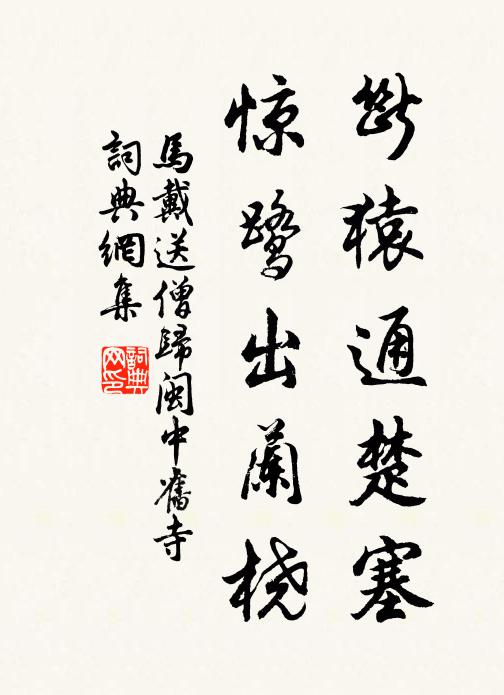 斷猿通楚塞
惊鷺出蘭桡
馬戴送僧歸閩中舊寺
詞典網集
詞典网印